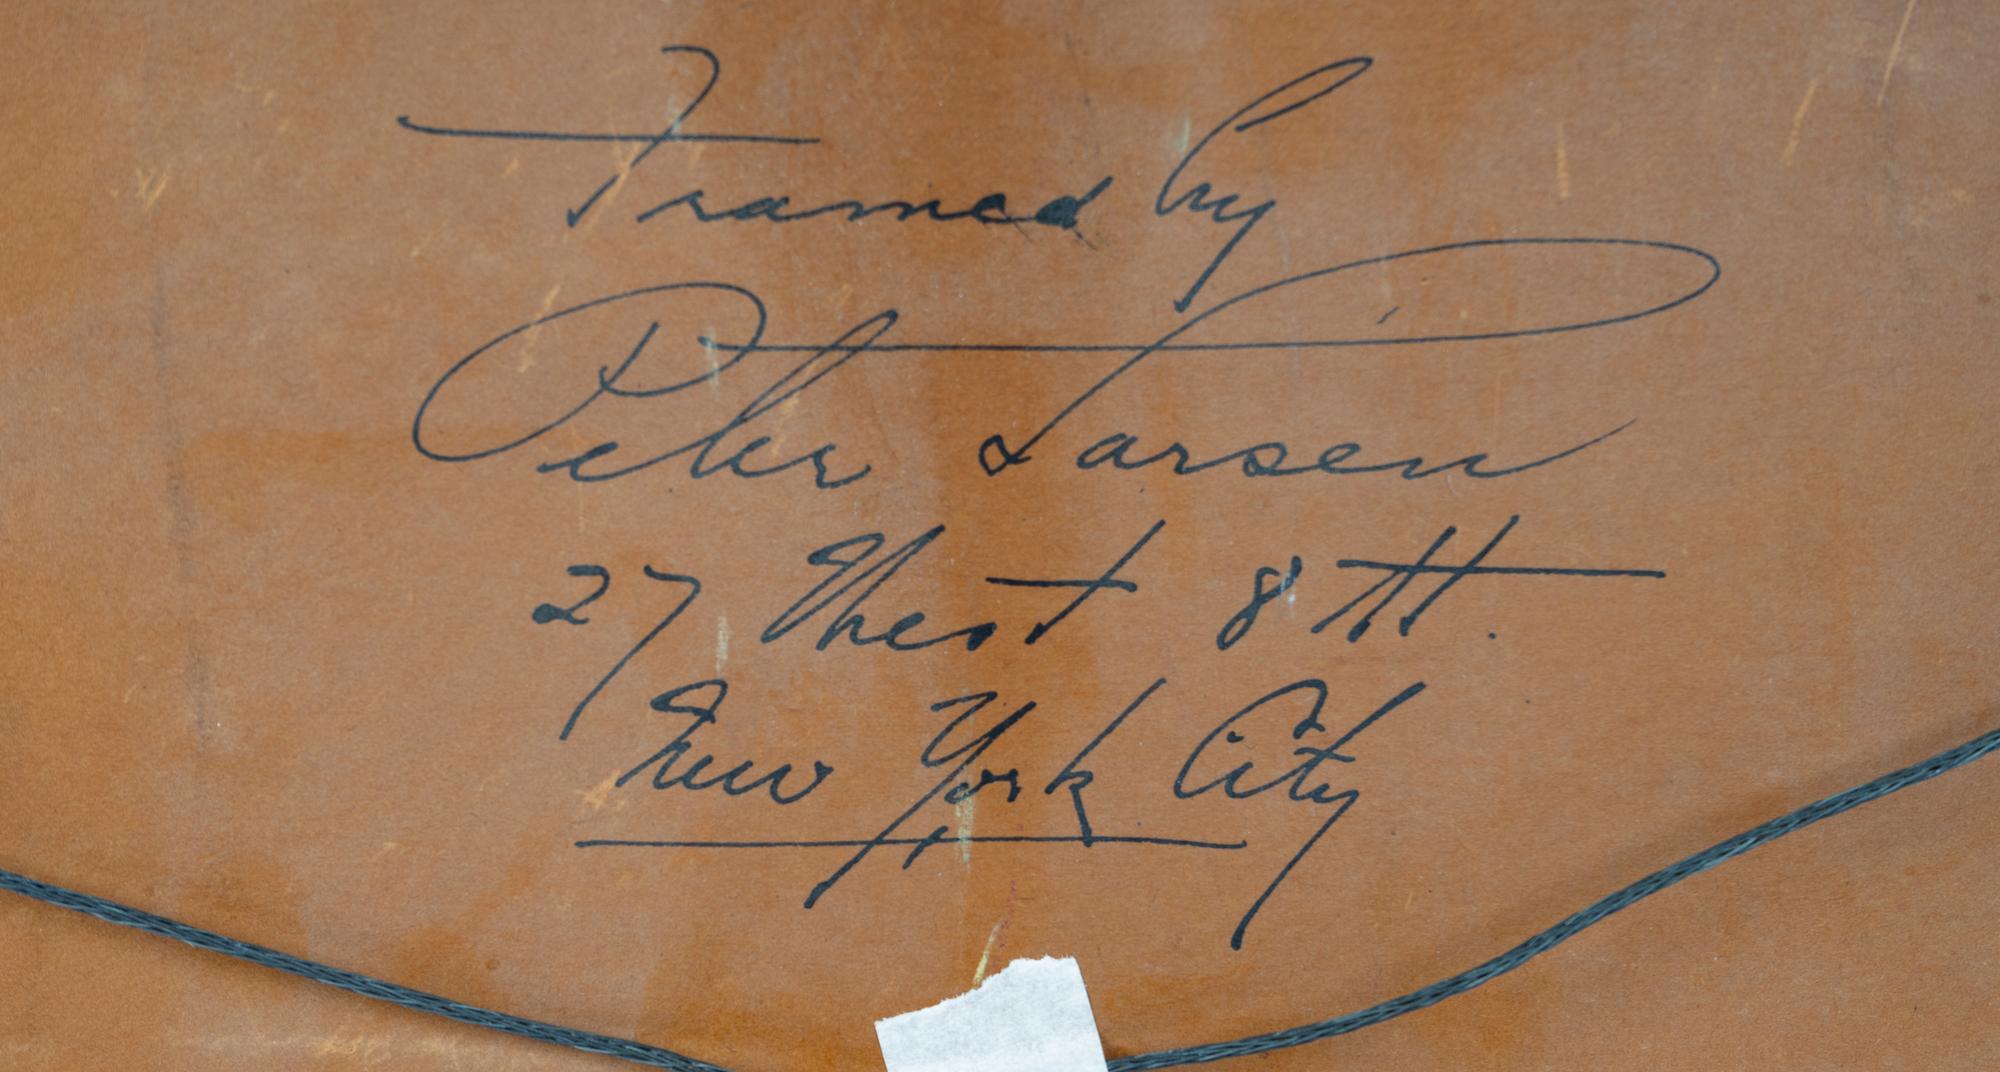 Framed by
Peter Larsen
27 West 8th.
New York City